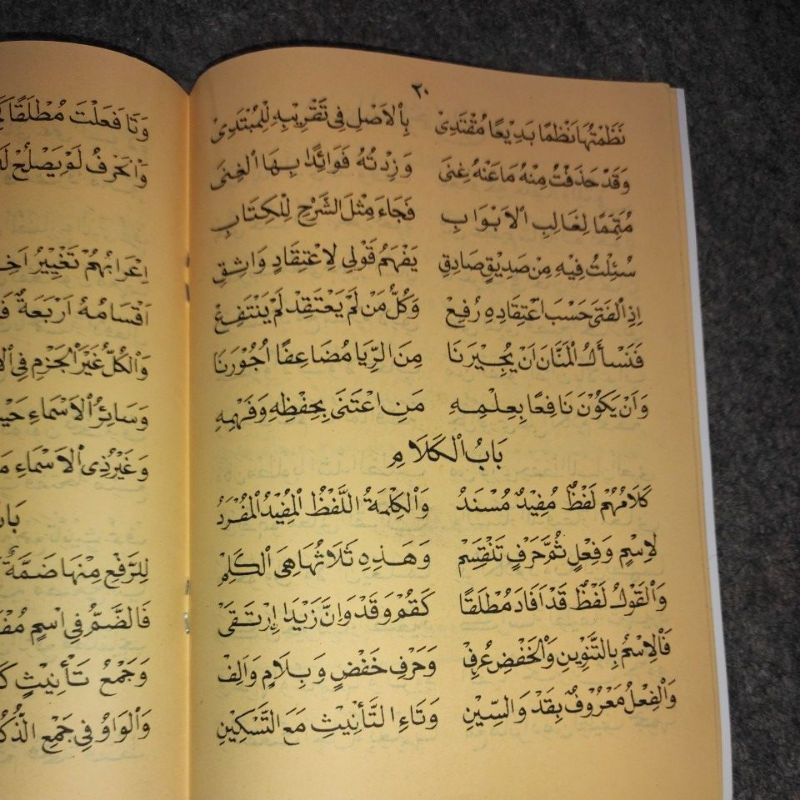 ٢٠
نَظَمْتُهَا نَظْمًا بَدِيْعًا مُقْتَدِىْ بِٱلْاَصْلِ فِى تَقْرِيْبِهِ لِلْمُبْتَدِىْ
وَقَدْ حَذَفْتُ مِنْهُ مَا عَنْهُ غِنَى وَزِدْتُهُ فَوَائِدًا بِهَا ٱلْغِنَى
مُتَمِّمًا لِغَالِبِ ٱلْاَبْوَابِ فَجَاءَ مِثْلَ الشَّرْحِ لِلْكِتَابِ
سُئِلْتُ فِيْهِ مِنْ صَدِيْقٍ صَادِقِ يَفْهَمُ قَوْلِى لِاعْتِقَادٍ وَاثِقِ
اِذِ ٱلْفَتَى حَسْبَ اعْتِقَادِهِ رُفِعْ وَكُلُّ مَنْ لَمْ يَعْتَقِدْ لَمْ يَنْتَفِعْ
فَنَسْأَلُ ٱلْمَنَّانَ اَنْ يُجِيْرَنَا مِنَ الرِّيَا مُضَاعِفًا اُجُوْرَنَا
وَاَنْ يَكُوْنَ نَافِعًا بِعِلْمِهِ مَنِ اعْتَنَى بِحِفْظِهِ وَفَهْمِهِ
بَابُ ٱلْكَلَامِ
كَلَامُهُمْ لَفْظٌ مُفِيْدٌ مُسْنَدُ وَٱلْكِلْمَةُ اللَّفْظُ ٱلْمُفِيْدُ ٱلْمُفْرَدُ
لِاسْمٍ وَفِعْلٍ ثُمَّ حَرْفٍ تَنْقَسِمْ وَهٰذِهِ ثَلَاثُهَا هِىَ ٱلْكَلِمْ
وَٱلْقَوْلُ لَفْظٌ قَدْ اَفَادَ مُطْلَقًا كَقُمْ وَقَدْ وَاِنَّ زَيْدًا اِرْتَقَى
فَٱلِاسْمُ بِالتَّنْوِيْنِ وَٱلْخَفْضِ عُرِفْ وَحَرْفِ خَفْضٍ وَبِلَامٍ وَاَلِفْ
وَٱلْفِعْلُ مَعْرُوْفٌ بِقَدْ وَالسِّيْنِ وَتَاءِ التَّأْنِيْثِ مَعَ التَّسْكِيْنِ
وَتَا فَعَلْتَ مُطْلَقًا
وَٱلْحَرْفُ لَمْ يَصْلُحْ
اِعْرَابُهُمْ تَغْيِيْرُ
اَقْسَامُهُ اَرْبَعَةٌ
وَٱلْكُلُّ غَيْرَ ٱلْجَزْمِ فِى
وَسَائِرُ ٱلْاَسْمَاءِ
وَغَيْرُ ذِى ٱلْاَسْمَاءِ
لِلرَّفْعِ مِنْهَا ضَمَّةٌ
فَالضَّمُّ فِى اسْمٍ
وَجَمْعُ تَأْنِيْثٍ
وَٱلْوَاوُ فِى جَمْعِ